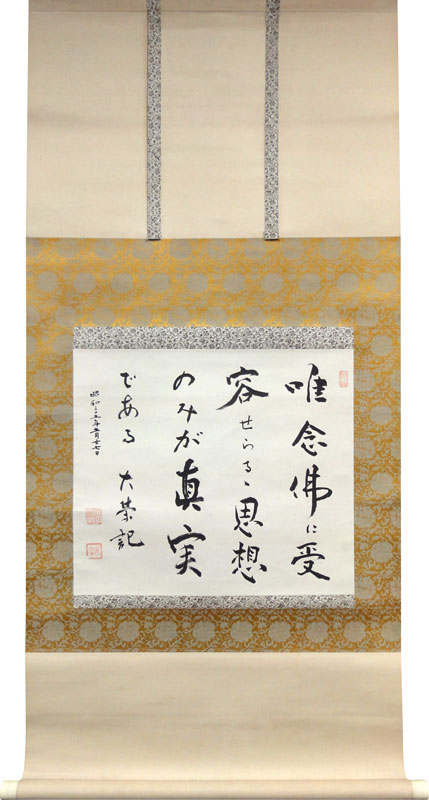 唯念佛に受
容せらるゝ思想
のみが真実
である 大榮記
昭和三十五年五月十七日